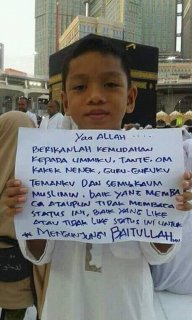 Yaa ALLAH ....
BERIKANLAH KEMUDAHAN
KEPADA UMMIKU, TANTE, OM
KAKEK NENEK, GURU-GURUKU
TEMANKU DAN SEMUA KAUM
MUSLIMIN, BAIK YANG MEMBA
CA ATAUPUN TIDAK MEMBACA
STATUS INI, BAIK YANG LIKE
ATAU TIDAK LIKE STATUS INI UNTUK
MENGUNJUNGI BAITULLAH...